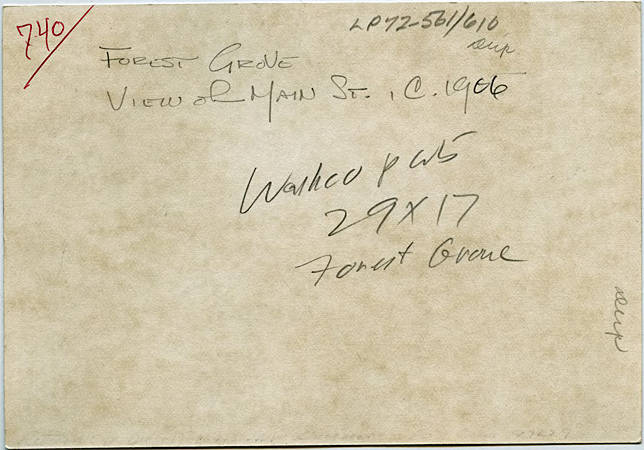 740/
LP72-561/610
dup
FOREST GROVE
VIEW OF MAIN ST., C. 1906
Washco p
29X17
Forest Grove
dup